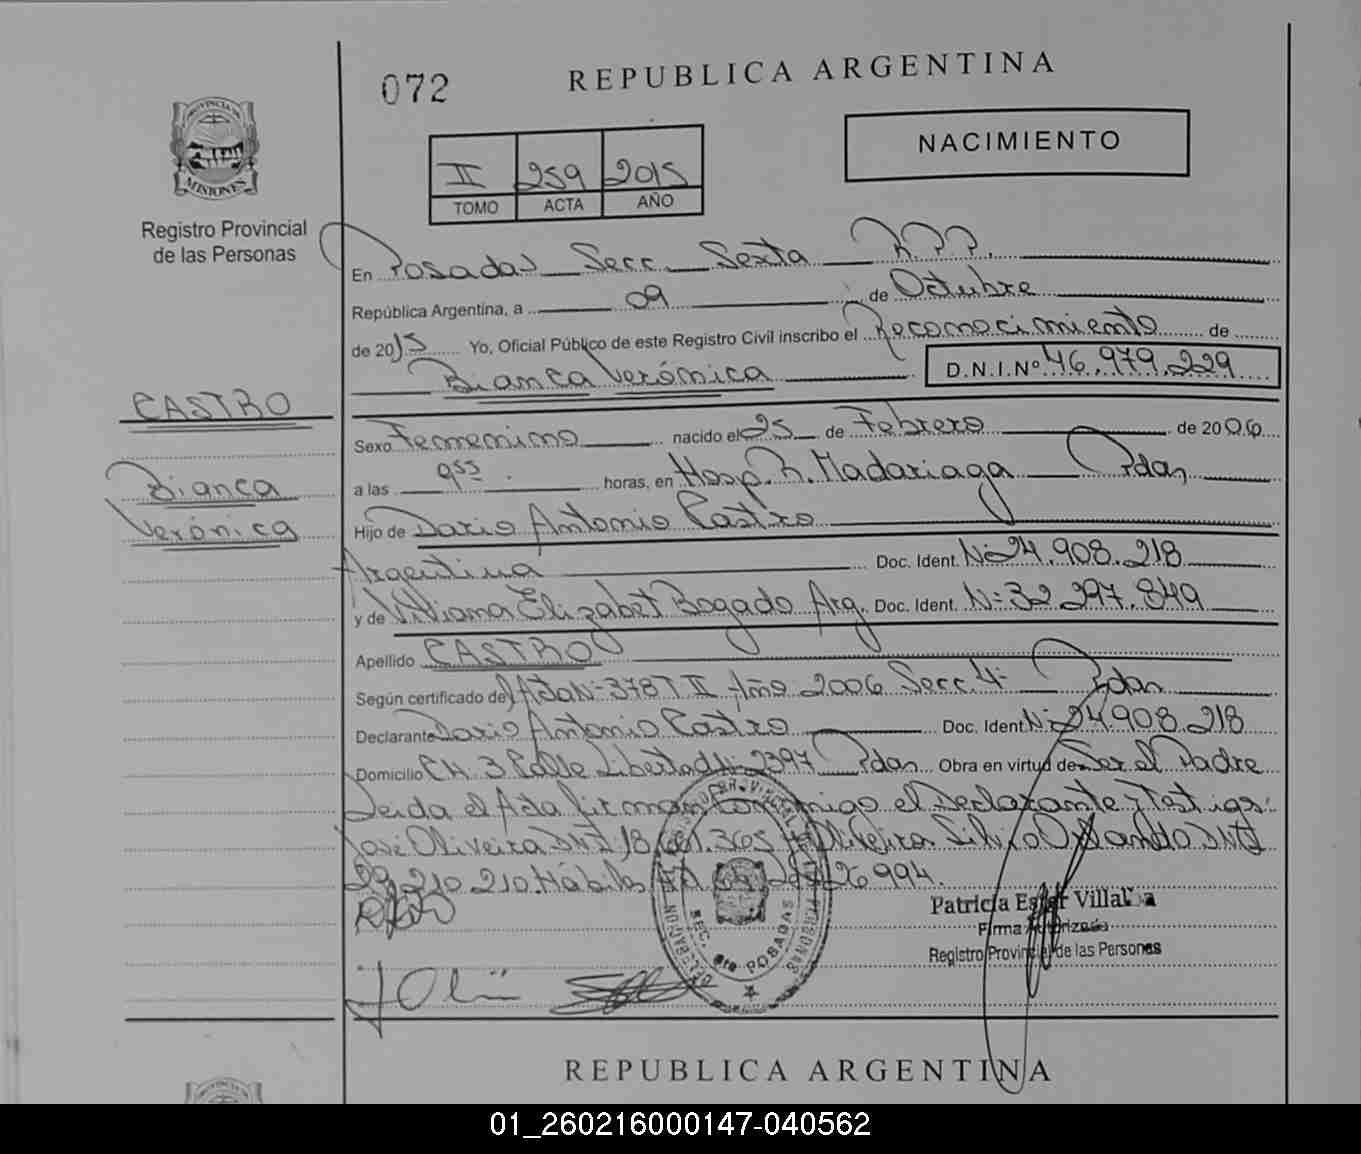 072
REPUBLICA ARGENTINA
PROVINCIA DE
MISIONES
Registro Provincial
de las Personas
II 259 2015
TOMO ACTA AÑO
NACIMIENTO
En Posadas Secc. Sexta R.P.P.
República Argentina, a 09 de Octubre
de 2015 Yo, Oficial Público de este Registro Civil inscribo el Reconocimiento de
Bianca Verónica D.N.I.Nº 46.979.229
CASTRO
Bianca
Verónica
Sexo Femenino nacido el 25 de Febrero de 2006
a las 9:55 horas, en Hosp. R. Madariaga Pdas,
Hijo de Dario Antonio Castro
Argentina Doc. Ident. Nº 24.908.218
y de Viviana Elizabet Bogado Arg. Doc. Ident. Nº 32.297.849
Apellido CASTRO
Según certificado de Acta Nº 378 T II Año 2006 Secc. 4º Pdas
Declarante Dario Antonio Castro Doc. Ident. Nº 24.908.218
Domicilio CH. 3 Calle Libertad Nº 2397 Pdas Obra en virtud de Ser el Padre
Leida el Acta firman conmigo el Declarante y Testigos:
José Oliveira DNI 18. 365 Oliveira Silvio Orlando DNI
29.210.210 Hábiles 26994.
SEC. 6ta POSADAS
Patricia Ester Villalba
Firma Autorizada
Registro Provincial de las Personas
REPUBLICA ARGENTINA
01_260216000147-040562